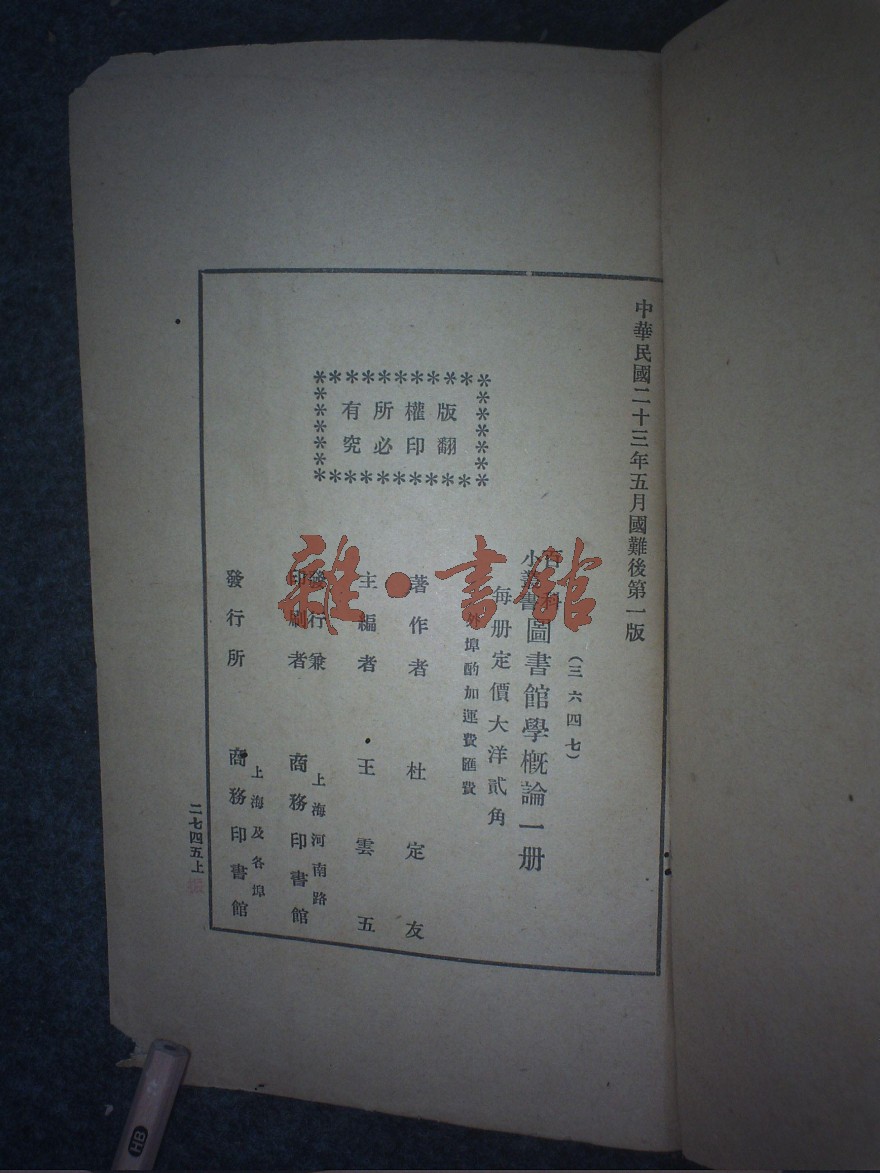 中華民國二十三年五月國難後第一版
(三六四七)
百科
小叢書
圖書館學概論一册
每册定價大洋貳角
外埠酌加運費匯費
著作者 杜定友
主編者 王雲五
發行兼
印刷者
上海河南路
商務印書館
發行所
上海及各埠
商務印書館
版權所有
翻印必究
二七四五上
雜·書館
HB